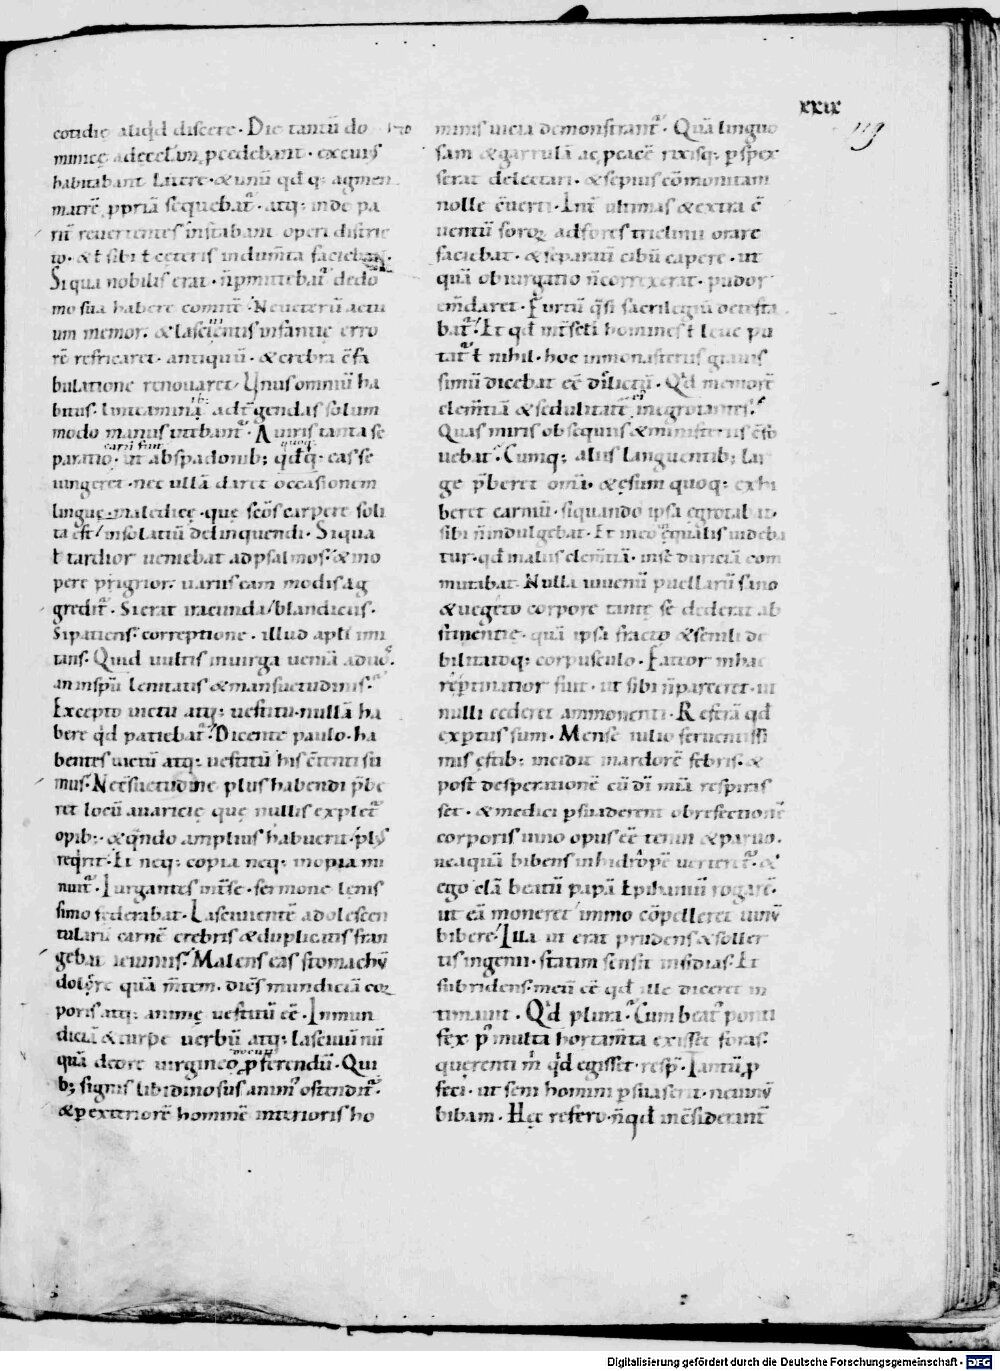 xxix
119
cotidię aliqd discere · Die tantū do
minicę ad ęcclam pcedebant · ex cuiꝰ
habitabant latere · & unū qdq; agmen
matrē ppriā sequebat͛ · atq; inde pa
rit͛ reuertentes instabant operi distric
to · & ł sibi ł ceteris indum̄ta faciebant·
Siqua nobilis erat · n̄pmittebat͛ dedo
mo sua habere comitē · Ne ueterū actu
um memor · & lasciuientis infantię erro
rē refricaret · antiquū · & crebra c̄fa
bulatione renouaret / Unus omniū ha
bitus · linteaminib; ad t͛gendas solum
modo manus utebant͛ · A uiris tanta se
paratio · ut a bspadonib; qdq; eas se
iungeret · nec ullā daret occasionem
linguę maledicę · quę sc̄os carpere soli
ta est / insolatiū delinquendi · Siqua
ł tardior ueniebat adpsalmos · & ino
pere pigrior · uariis eam modis ag
gredit͛ · Si erat iracunda / blandiciis ·
Sipatiens · correptione · illud apłi imi
tans · Quid uultis inuirga ueniā aduos ·
an inspū lenitatis & mansuetudinis ·
Excepto uictu atq; uestitu · nullā ha
bere qd patiebat͛ · Dicente paulo · ha
bentes uictū atq; uestitū his c̄tenti su
mus · Ne c̄suetudine plus habendi p̄be
ret locū auaricię quę nullis explet͛
opib; · & q̄ndo amplius habuerit · plꝰ
reqrit · Et neq; copia neq; inopia mi
nuit͛ · Iurgantes int͛se · sermone lenis
simo fęderabat · Lasciuientē adolescen
tularū carnē crebris & duplicatis fran
gebat ieiuniis · Malens eas stomachū
dolere quā m̄tem · dic̄s mundiciā cor
poris atq; animę uestitū ee · Inmun
diciā & turpe uerbū atq; lasciuū nū
quā de ore uirgineo pferendū · Qui
b; signis libidinosus animꝰ ostendit͛ ·
& p exteriorē hominē interioris ho
minis uicia demonstrant͛ · Quā linguo
sam & garrulā ac pcacē rixisq; pspex
serat delectari · & sepius cōmonitam
nolle c̄uerti · Int͛ ultimas & extra c̄
uentū soror̨ adfores triclinii orare
faciebat · & separatū cibū capere · ut
quā obiurgatio n̄correxerat · pudor
em̄daret · Furtū q̄si sacrilegiū detesta
bat͛ · Et qd int͛ sc̄li homines ł leue pu
tat͛ ł nihil · hoc inmonasteriis grauis
simū dicebat ee dilictū · Qd memorē
clem̄tiā & sedulitatē inęgrotantes ·
Quas miris obsequiis & ministeriis c̄fo
uebat · Cumq; aliis languentib; lar
ge p̄beret om̄ia · & ęsum quoq; exhi
beret carniū · siquando ipsa ęgrotabat ·
sibi n̄indulgebat · Et ineo inęqualis uideba
tur · qd inaliis clem̄tiā · inse duriciā com
mutabat · Nulla iuuenū puellarū sano
& uegeto corpore tantę se dederat ab
stinentię · quā ipsa fracto & senili de
bilitatoq; corpusculo · Fateor inhac
re ptinatior fuit · ut sibi n̄parceret · ut
nulli cederet ammonenti · Referā qd
exptus sum · Mense iulio feruentissi
mis estib; incidit inardorē febris · &
post despationē cū dī mīa respiras
set · & medici psuaderent obrefectionē
corporis uino opus eē tenui & paruo ·
ne aquā bibens inhidrope uerteret͛ · &
ego clā beatū papā Epiphaniū rogarē ·
ut eā moneret immo cōpelleret uinū
bibere / Illa ut erat prudens & soller
tis ingenii · statim sensit insidias · Et
subridens · meū eē qd ille diceret in
timauit · Qd plura · Cum beatꝰ ponti
fex p multa hortam̄ta exisset foras ·
querenti m qd egisset · resp · Tantū p
feci · ut seni homini psuaserit · ne uinū
bibam · Hęc refero · n̄qd inc̄siderant͛